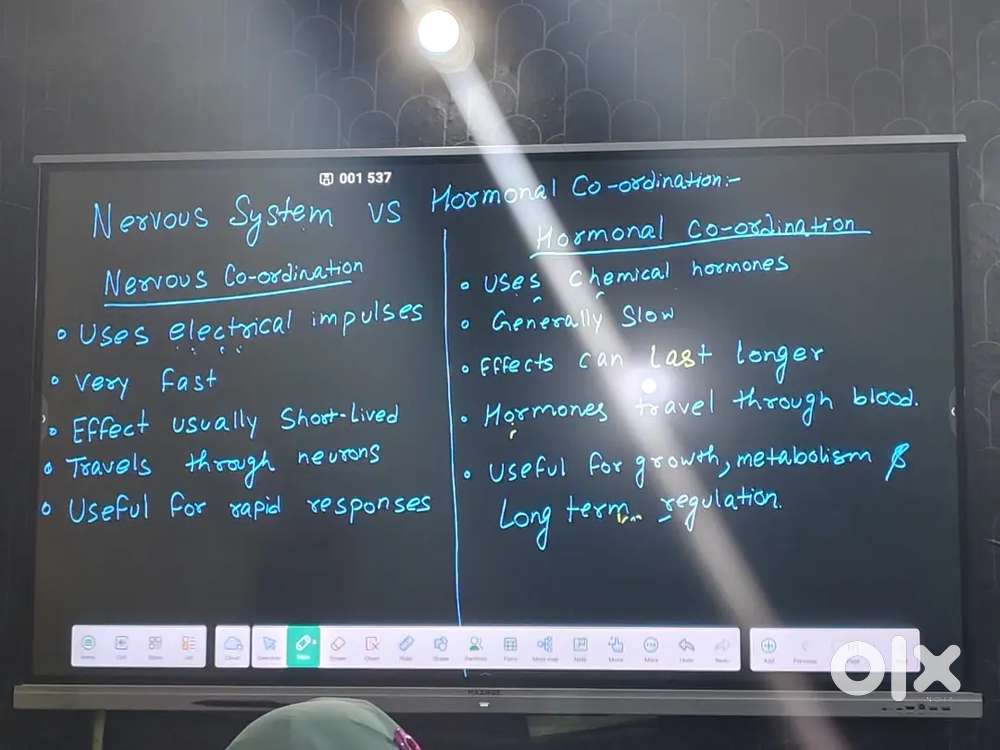 001 537
Nervous System vs Hormonal Co-ordination:-
Nervous Co-ordination
• Uses electrical impulses
• Very fast
• Effect usually Short-Lived
• Travels through neurons
• Useful for rapid responses
Hormonal Co-ordination
• Uses Chemical hormones
• Generally Slow
• Effects can last longer
• Hormones travel through blood.
• Useful for growth, metabolism &
Long term regulation.
olx